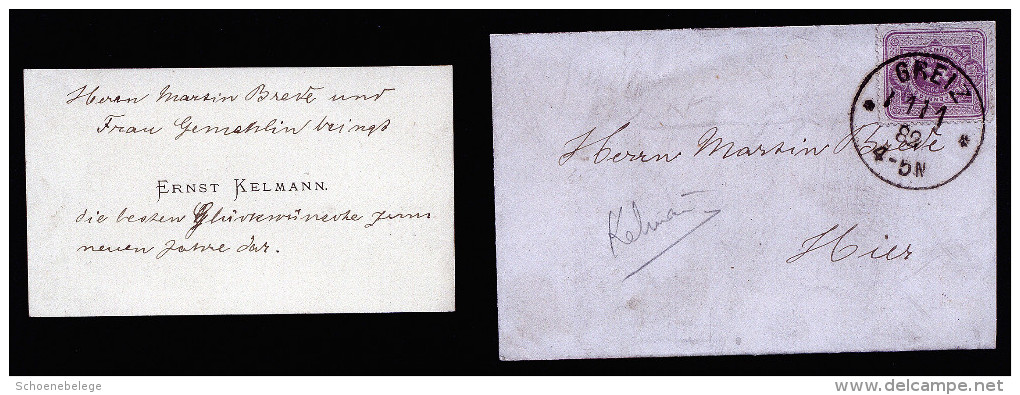 Herrn Martin Brede und
Frau Gemahlin bringt
ERNST KELMANN.
die besten Glückwünsche zum
neuen Jahre dar.
GREIZ
1/1
82
4-5N
Herrn Martin Brede
Hier
Kelmann
Schoenebelege
delcampe.net